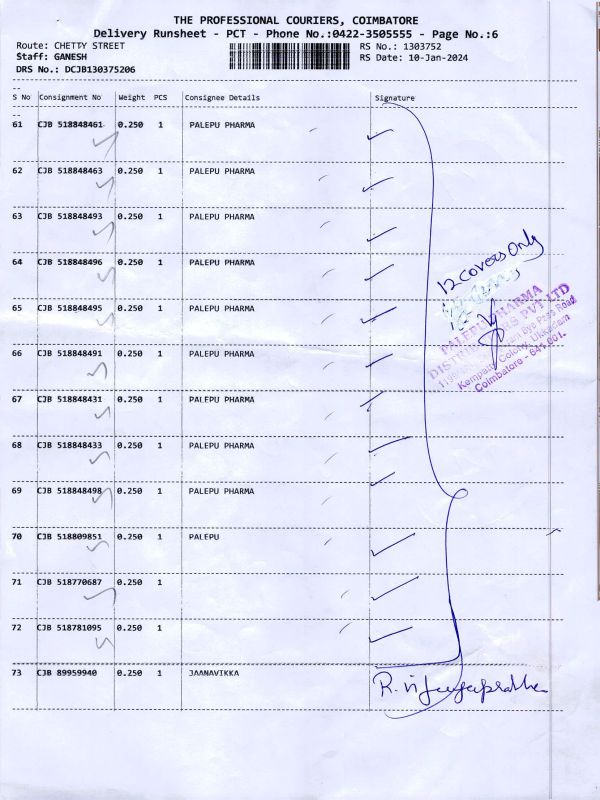 THE PROFESSIONAL COURIERS, COIMBATORE
Delivery Runsheet - PCT - Phone No.:0422-3505555 - Page No.:6
Route: CHETTY STREET
RS No.: 1303752
Staff: GANESH
RS Date: 10-Jan-2024
DRS No.: DCJB130375206
S No Consignment No Weight PCS Consignee Details Signature
61 CJB 518848461 0.250 1 PALEPU PHARMA
62 CJB 518848463 0.250 1 PALEPU PHARMA
63 CJB 518848493 0.250 1 PALEPU PHARMA
64 CJB 518848496 0.250 1 PALEPU PHARMA
65 CJB 518848495 0.250 1 PALEPU PHARMA
66 CJB 518848491 0.250 1 PALEPU PHARMA
67 CJB 518848431 0.250 1 PALEPU PHARMA
68 CJB 518848433 0.250 1 PALEPU PHARMA
69 CJB 518848498 0.250 1 PALEPU PHARMA
70 CJB 518809851 0.250 1 PALEPU
71 CJB 518770687 0.250 1
72 CJB 518781095 0.250 1
73 CJB 89959940 0.250 1 JAANAVIKKA
12 Covers Only
PALEPU PHARMA
PVT LTD
Bye Pass Road
Colony, Ukkadam
Coimbatore - 641 001.